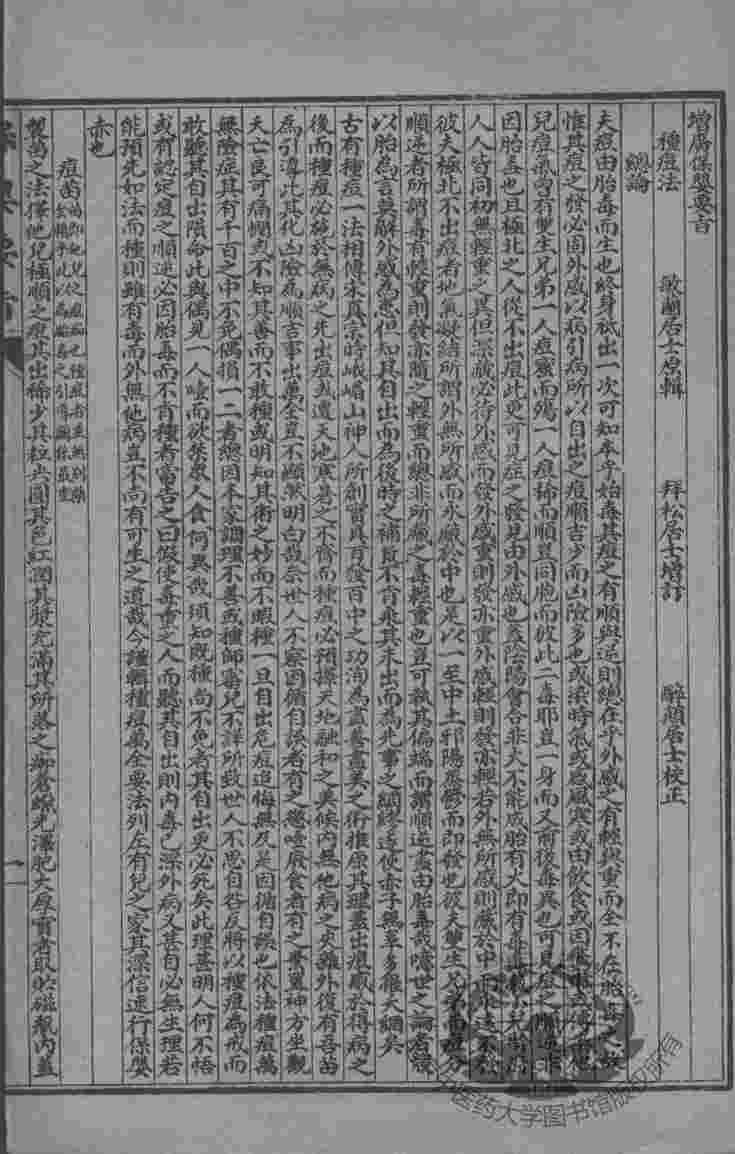 增廣保嬰要旨
種痘法 敏圃居士原輯 拜松居士增訂 醉顛居士校正
總論
夫痘由胎毒而生也終身祇出一次可知本乎始毒其痘之有順與逆則總在乎外感之有輕與重而全不在胎毒之
惟其痘之發必因外感以病引病所以自出之痘順吉少而凶險多也或染時氣或感風寒或由飲食或因
兒痘氣曾有雙生兄弟一人痘密而殤一人痘稀而順豈同胞而彼此二毒耶豈一身而又前後毒異也可見痘之順逆非
因胎毒也且極北之人從不出痘此更可見症之發見由外感也蓋陰陽會合非火不能成胎有火即有毒
人人皆同初無輕重之異但深藏必待外感而發外感重則發亦重外感輕則發亦輕若外無所感則藏於中而
彼夫極北不出痘者地氣凝結所謂外無所感而永藏於中也是以一至中土邪陽蒸鬱而即發也彼夫雙生兄弟而
順逆者所謂毒有輕重則發亦隨之輕重而總非所藏之毒輕重也豈可執其偏端而謂順逆盡由胎毒哉噫世之論者殺
以胎為言莫解外感為患但知其自出而為後時之補救不肯乘其未出而為先事之綢繆遂使赤子無辜多罹天網矣
古有種痘一法相傳宋真宗時峨嵋山神人所創實具百發百中之功洵為盡善盡美之術推原其理蓋出痘感於得病之
後而種痘必施於無病之先出痘或遭天地寒暑之不齊而種痘必預擇天地融和之美候內無他病之夾雜外復有吾苗
為引導此其化凶險為順吉事出萬全豈不顯然明白哉奈世人不察因循自誤者有之懲噎廢食者有之帶翼神方坐觀
夭亡良可痛憫或不知其善而不敢種或明知其術之妙而不暇種一旦自出危痘追悔無及是因循自誤也依法種痘萬
無險症其有千百之中不免偶損一二者總因本家調理不善或種師審兒不詳所致世人不思自咎反將以種痘為戒而
敢聽其自出隕命此與偶見一人噎而欲禁衆人食何異哉須知既種尚不免者其自出更必死矣此理甚明人何不悟
或有認定痘之順逆必因胎毒而不肯種者當告之曰假使毒重之人而聽其自出則內毒已深外病又甚自必無生理若
能預先如法而種則雖有毒而外無他病豈不尚有可生之道哉今謹輯種痘萬全要法列左有兒之家其深信速行保嬰
赤也
痘苗
製苗之法擇他兒極順之痘其出稀少其粒尖圓其色紅潤其漿充滿其所落之痂蒼蠟光澤肥大厚實者取貯磁瓶內蓋
中医药大学图书馆版权所有